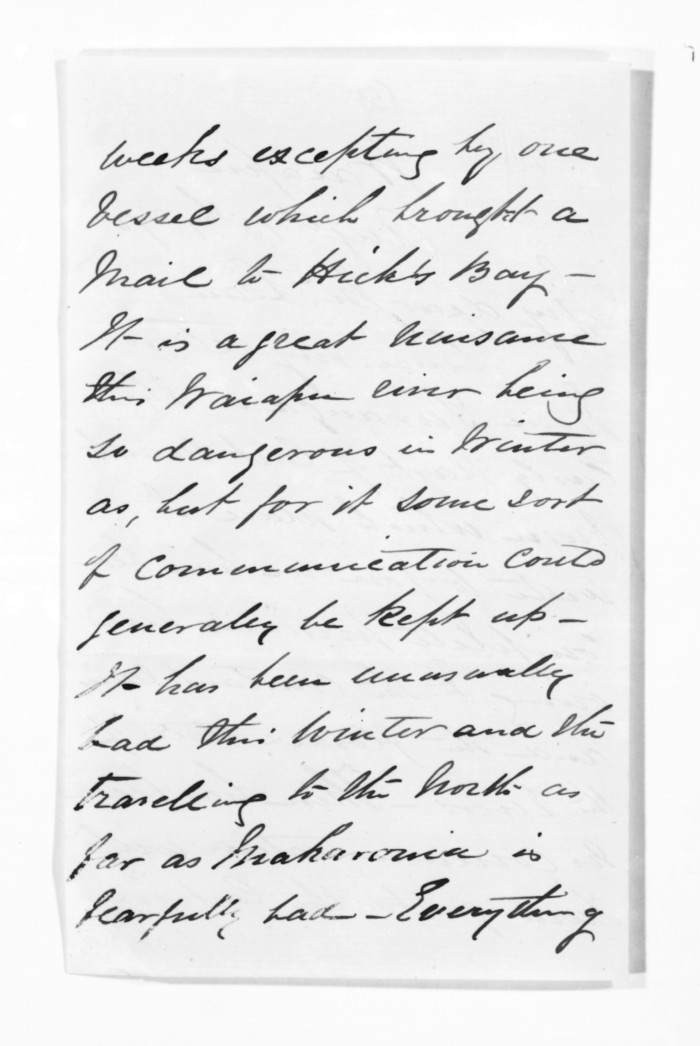 weeks excepting by one
vessel which brought a
Mail to Hick's Bay —
It is a great nuisance
this Waiapu river being
so dangerous in Winter
as, but for it some sort
of communication could
generally be kept up —
It has been unusually
bad this Winter and the
travelling to the North as
far as is
fearfully bad — Everything